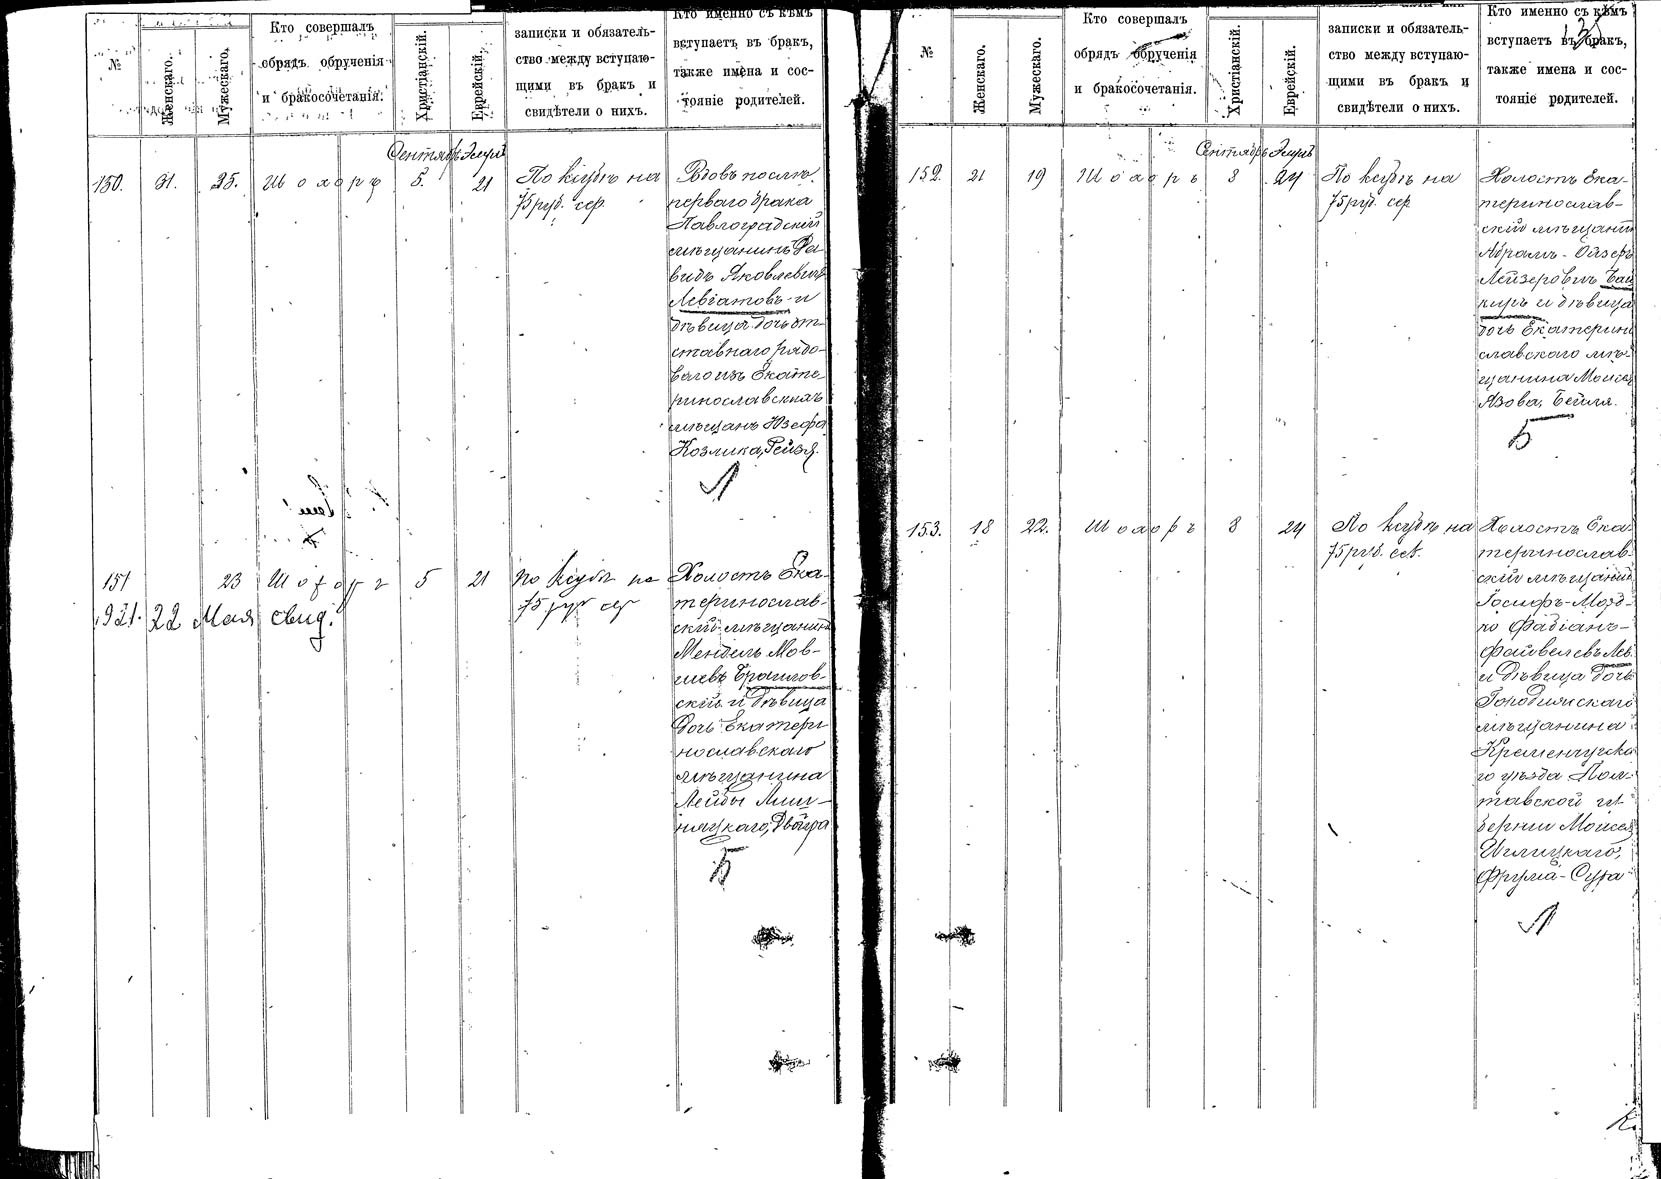 №
Женскаго.
Мужескаго.
Кто совершалъ
обрядъ обрученія
и бракосочетанія.
Христіанскій.
Еврейскій.
записки и обязатель-
ство между вступаю-
щими въ бракъ и
свидѣтели о нихъ.
Кто именно съ кѣмъ
вступаетъ въ бракъ,
также имена и сос-
тояніе родителей.
Сентябрь Элулъ
150. 31. 25. Шохоръ 5. 21
По ксубѣ на
75 руб. сер.
Вдовъ послѣ
перваго брака
Павлоградскій
мѣщанинъ Да-
видъ Яковлевичъ
Левіатовъ и
дѣвица дочь от-
ставнаго рядо-
ваго изъ Екате-
ринославскихъ
мѣщанъ Юзефа
Козлика, Рейзя.
Л
151 23 Шохоръ 5 21
по ксубѣ на
75 руб сер
1921. 22 Мая свид.
Холостъ Ека-
теринослав-
скій мѣщанинъ
Мендель Мов-
шевъ Браилов-
скій и дѣвица
дочь Екатери-
нославскаго
мѣщанина
Лейбы Лип-
няцкаго, Двойра
Б
№
Женскаго.
Мужескаго.
Кто совершалъ
обрядъ обрученія
и бракосочетанія.
Христіанскій.
Еврейскій.
записки и обязатель-
ство между вступаю-
щими въ бракъ и
свидѣтели о нихъ.
Кто именно съ кѣмъ
вступаетъ въ бракъ,
также имена и сос-
тояніе родителей.
Сентябрь Элулъ
152. 21 19 Шохоръ 8 24
По ксубѣ на
75 руб. сер
Холостъ Ека-
теринослав-
скій мѣщанинъ
Абрамъ-Ойзеръ
Лейзеровичъ
и дѣвица
дочь Екатерино
славскаго мѣ-
щанина Моисея
Азова, Бейля.
Б
153. 18 22. Шохоръ 8 24
По ксубѣ на
75 руб. сер.
Холостъ Ека-
теринослав-
скій мѣщанинъ
Іосифъ-Морд-
ко Фабіанъ-
Файвелевъ Лев
и дѣвица дочь
Городижскаго
мѣщанина
Кременчугска
го уѣзда Пол-
тавской гу-
берніи Моисея
Шилицкаго,
Фрума-Сура
Л